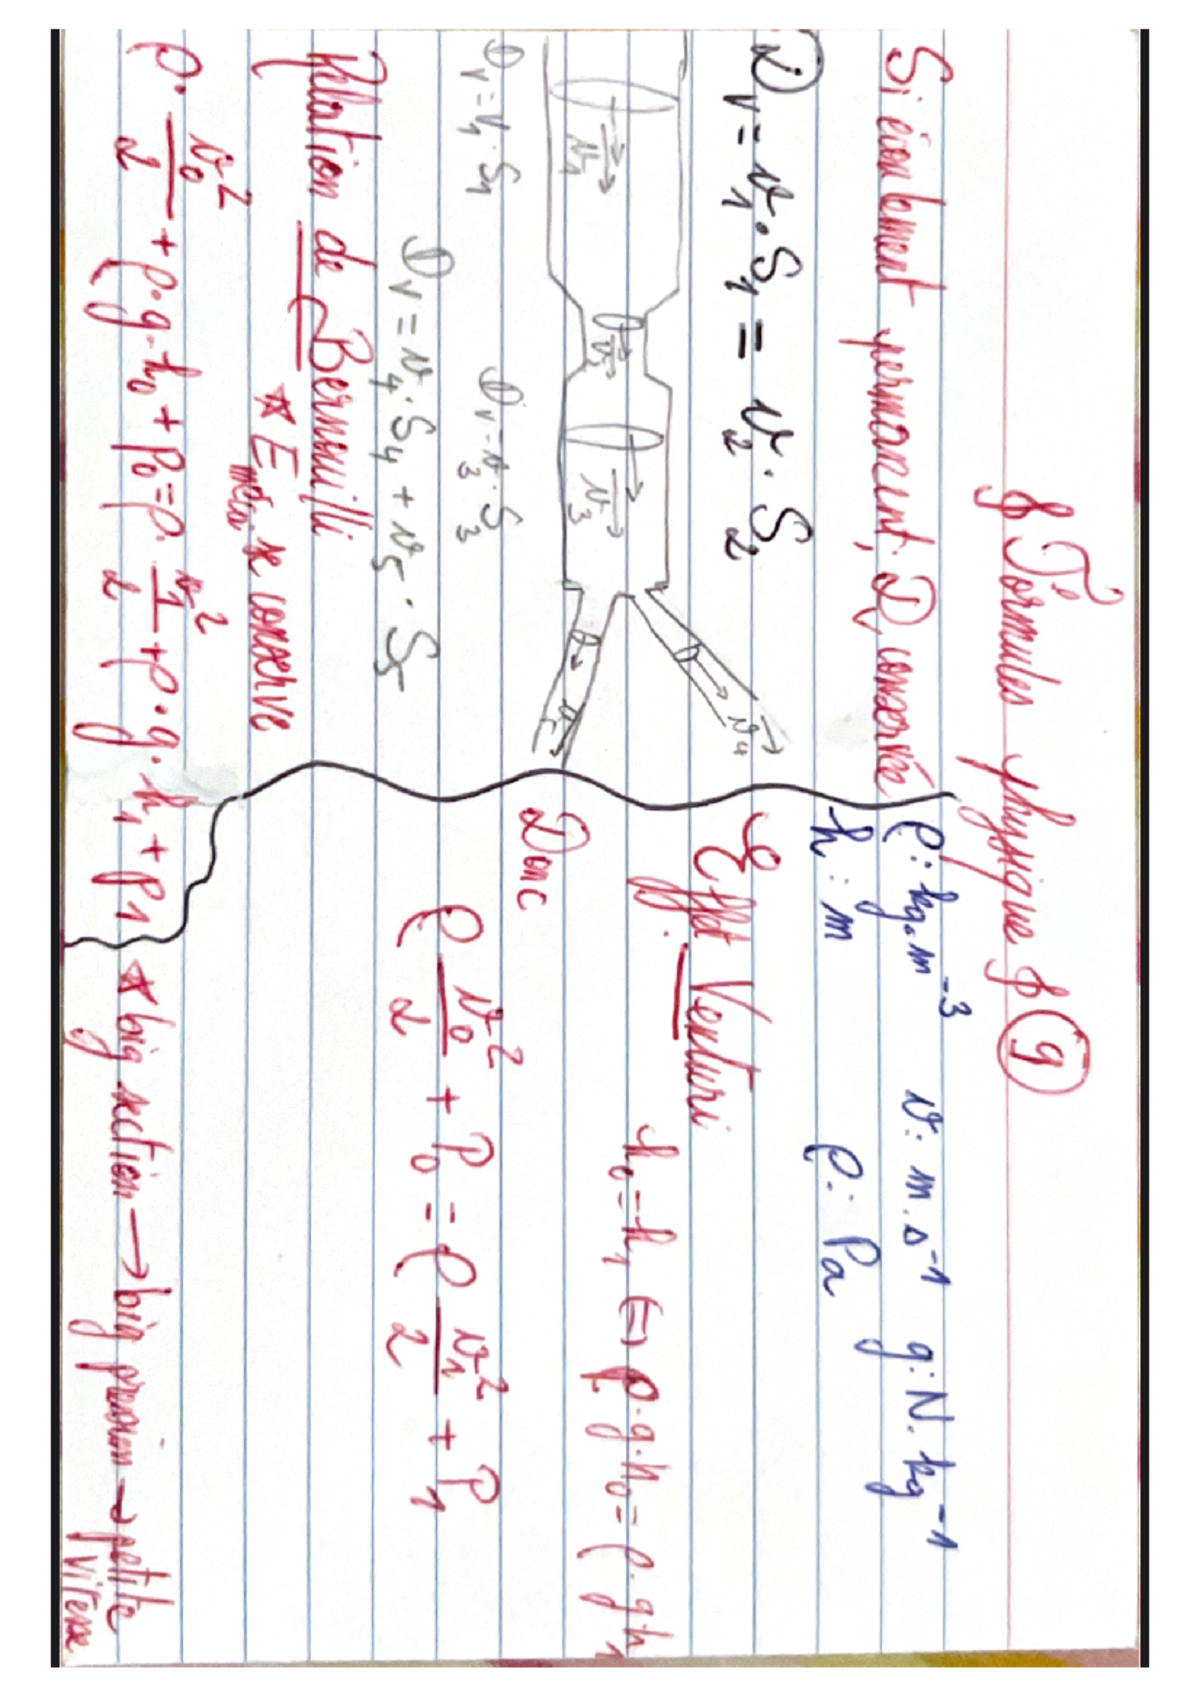 Formules physique 9
Si écoulement permanent, Dv conservée
Dv = v1 · S1 = v2 · S2
v1
v2
v3
v4
v5
Dv = v1 · S1
Dv = v3 · S3
Dv = v4 · S4 + v5 · S5
Relation de Bernouilli
* E méca se conserve
ρ · v0²/2 + ρ · g · h0 + P0 = ρ · v1²/2 + ρ · g · h1 + P1
ρ : kg.m⁻³ v : m.s⁻¹ g : N.kg⁻¹
h : m P : Pa
Effet Venturi
h0 = h1 ⇔ ρ·g·h0 = ρ·g·h1
Donc
ρ v0²/2 + P0 = ρ v1²/2 + P1
* big section → big pression → petite vitesse